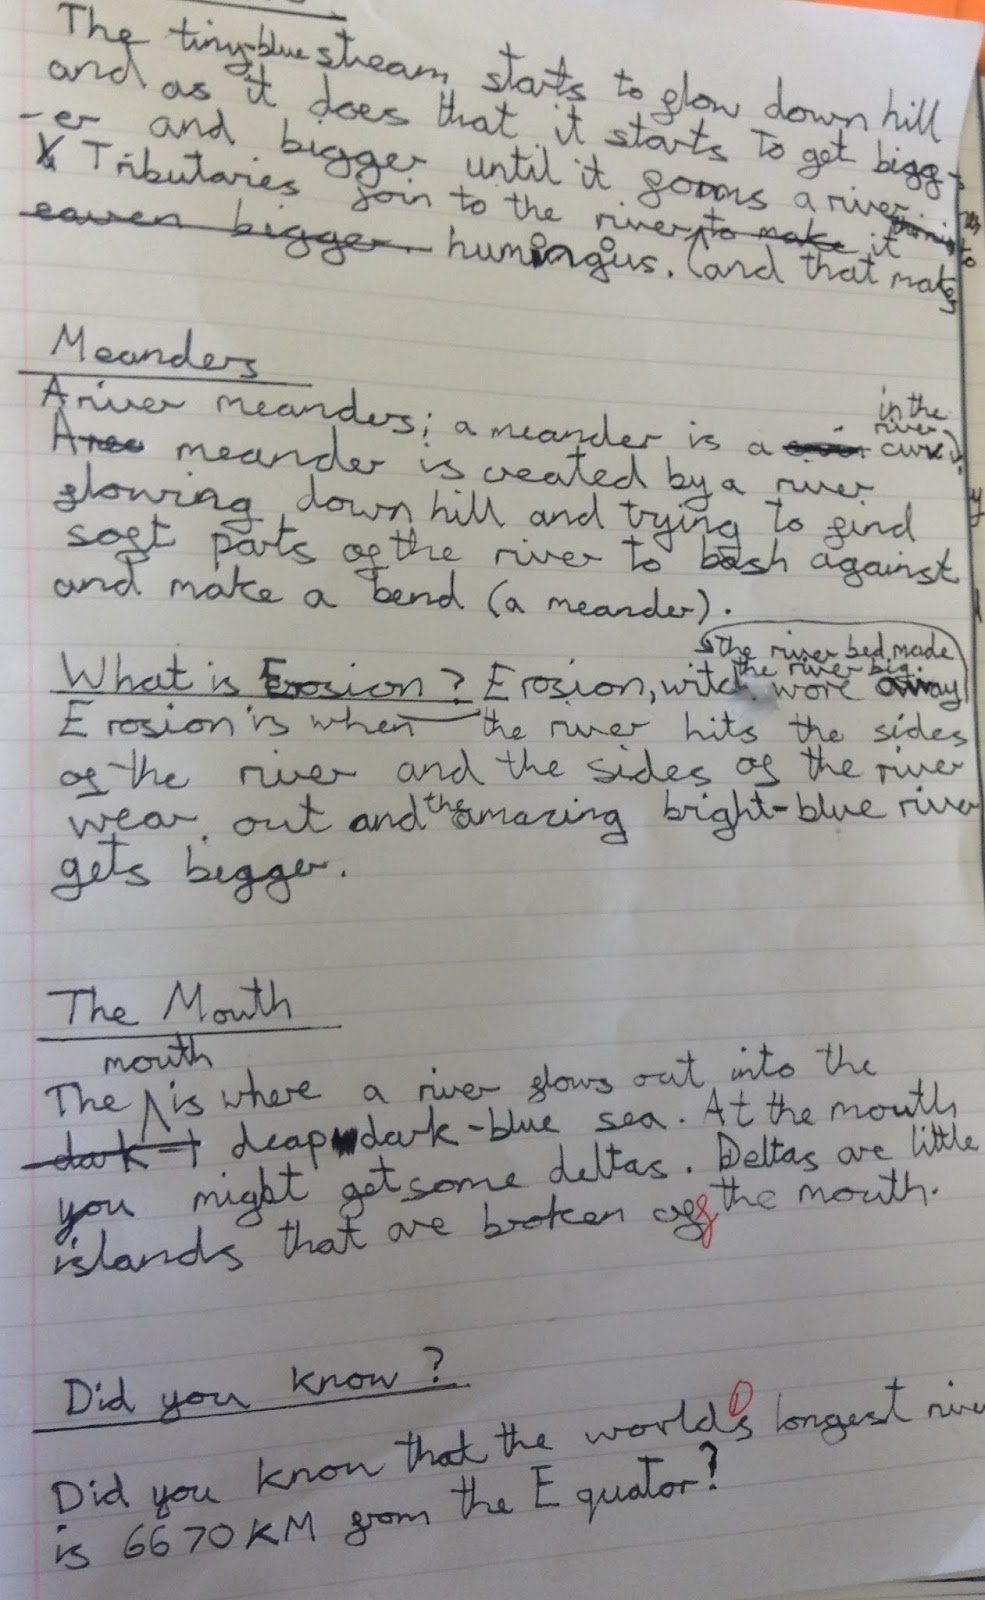 The tiny-blue stream starts to flow down hill
and as it does that it starts to get bigg-
-er and bigger until it forms a river
Tributaries join to the river to make it
eaven bigger. humingus. (and that makes
Meanders
A river meanders; a meander is a curve in the river.
A meander is created by a river
flowing down hill and trying to find
soft parts of the river to bash against
and make a bend (a meander).
the river bed made
the river big.
What is Erosion? Erosion, witch wore away
Erosion is when the river hits the sides
of the river and the sides of the river
wear out and the amazing bright-blue river
gets bigger.
The Mouth
mouth
The is where a river flows out into the
dark-t deap dark-blue sea. At the mouth
you might get some deltas. Deltas are little
islands that are broken off the mouth.
Did you know?
Did you know that the world's longest rive
is 6670KM from the Equator?